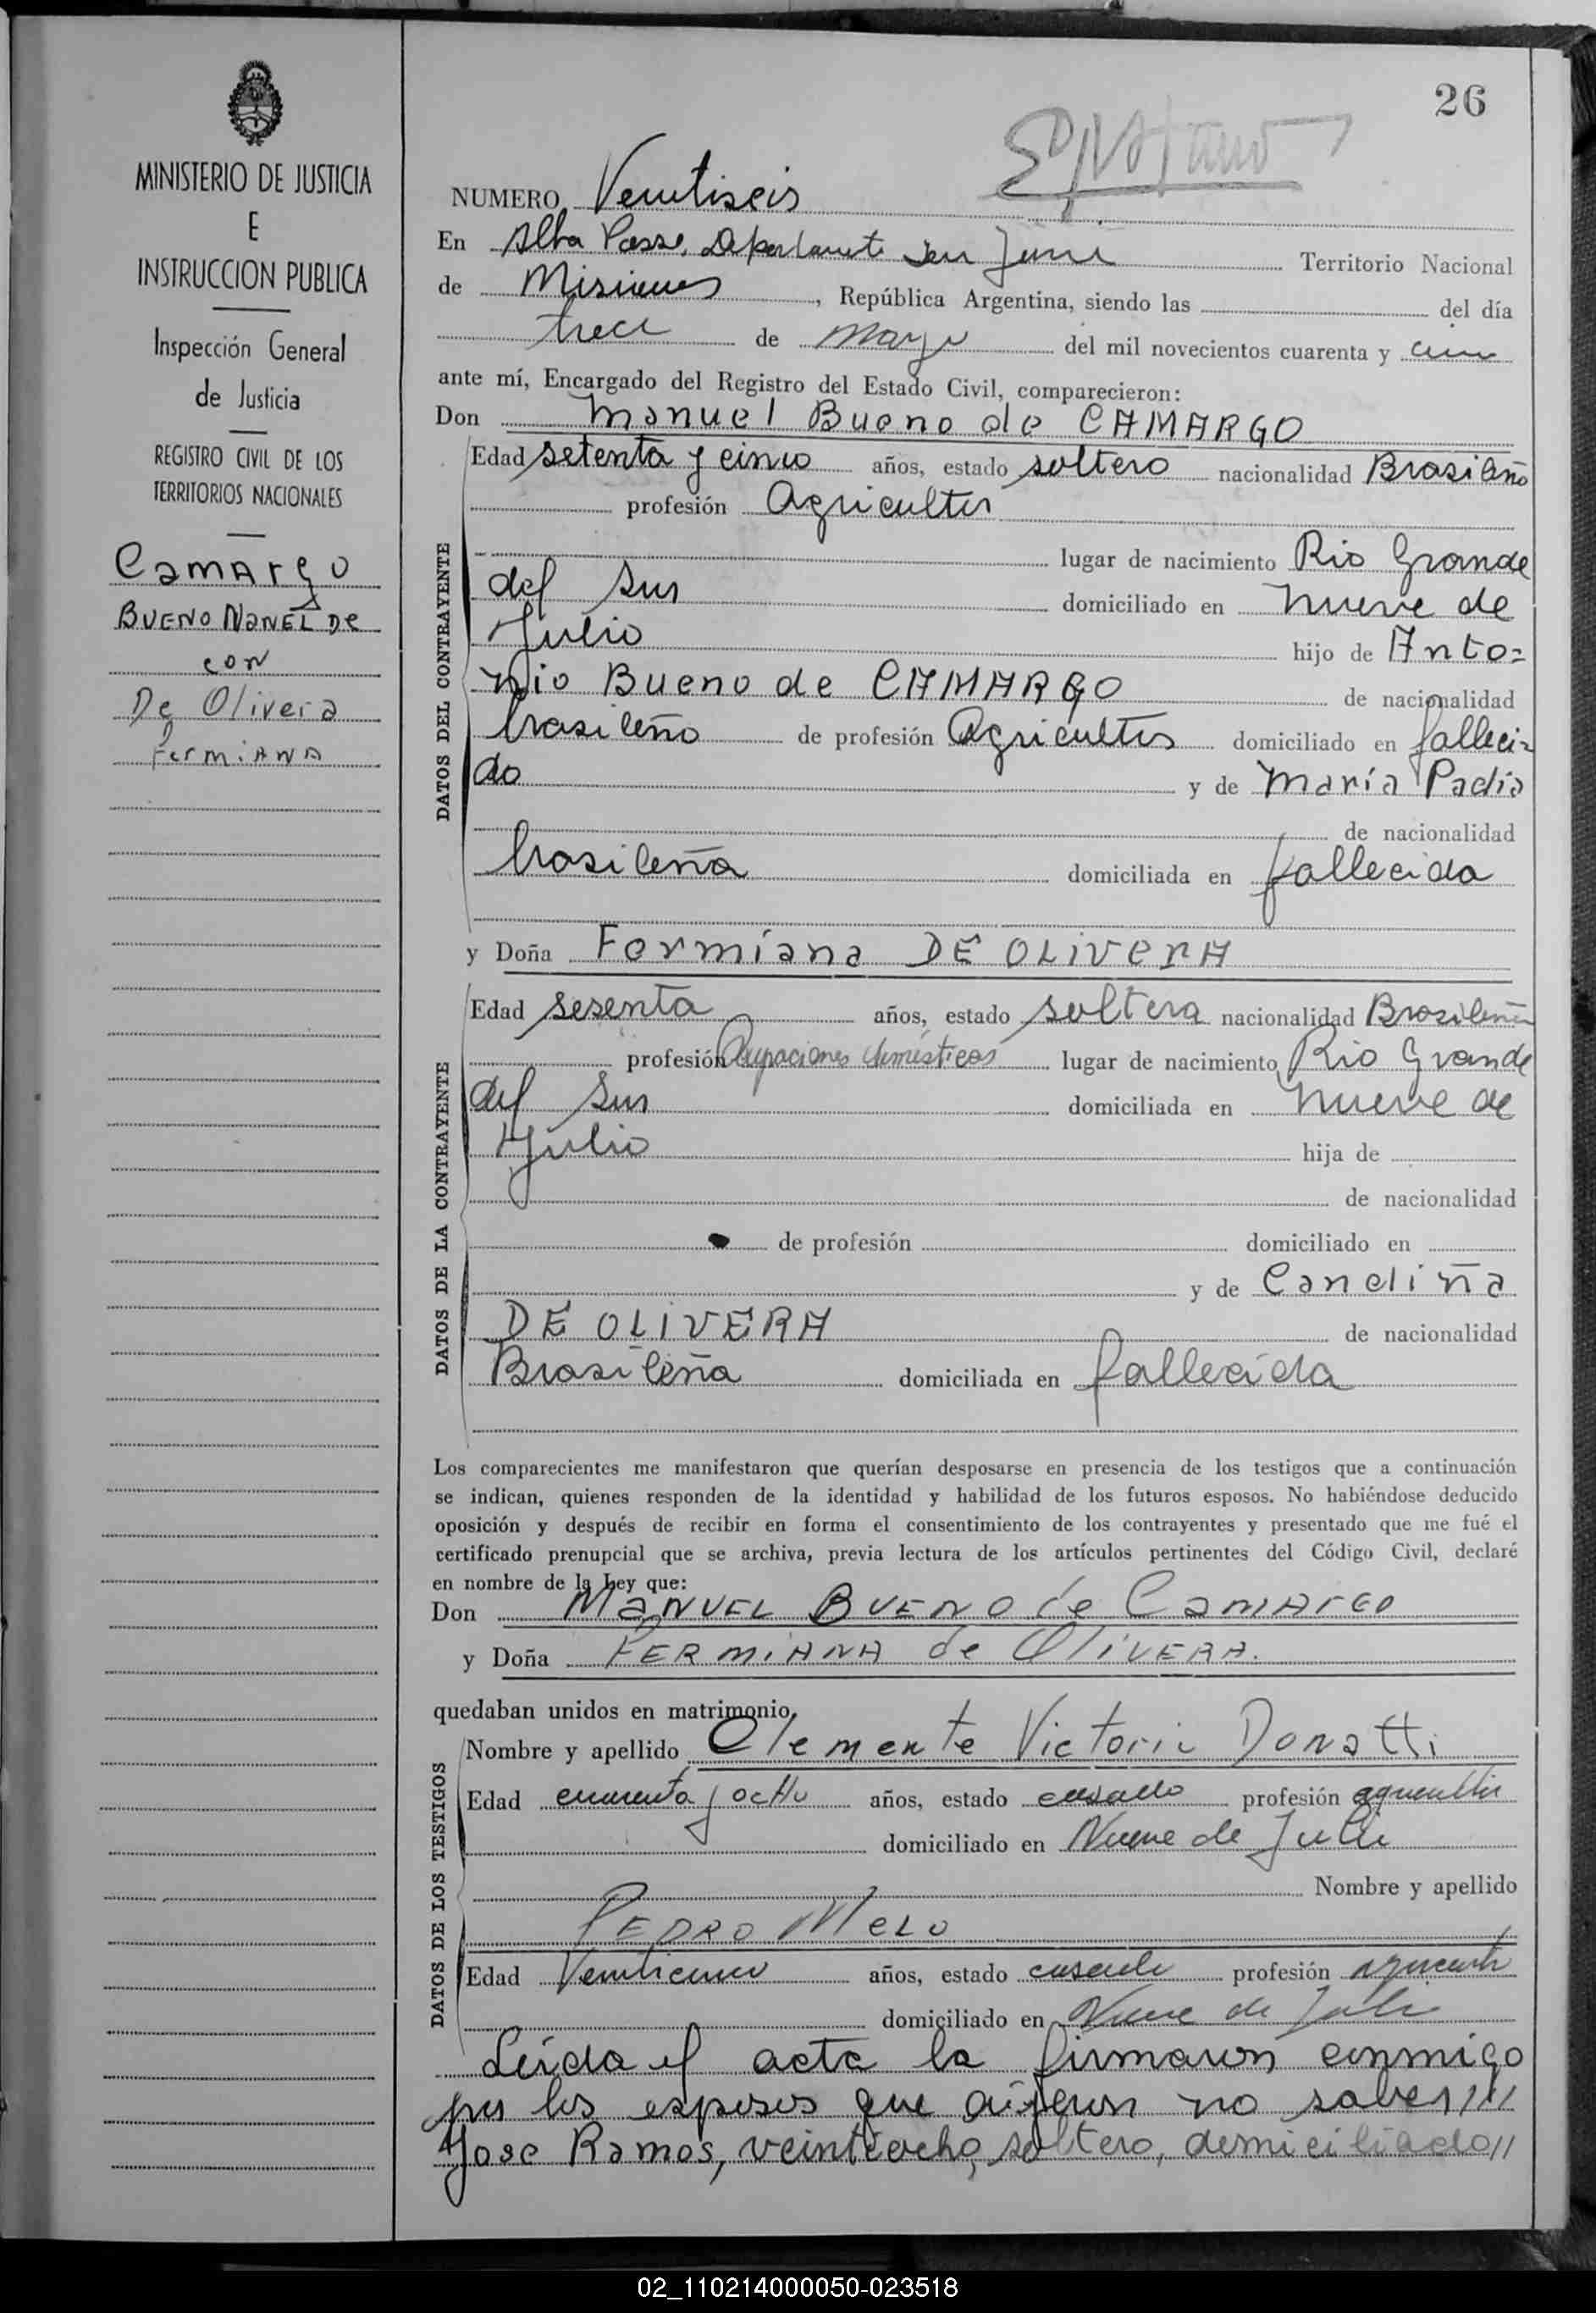 26
MINISTERIO DE JUSTICIA
E
INSTRUCCION PUBLICA
Inspección General
de Justicia
REGISTRO CIVIL DE LOS
TERRITORIOS NACIONALES
Camargo
BUENO MANEL De
con
De Olivera
Fermiana
NUMERO Veintiseis
En Alba Posse, Departamento San Javier Territorio Nacional
de Misiones, República Argentina, siendo las del día
trece de Mayo del mil novecientos cuarenta y
ante mí, Encargado del Registro del Estado Civil, comparecieron:
Don Manuel Bueno de CAMARGO
DATOS DEL CONTRAYENTE
Edad setenta y cinco años, estado soltero nacionalidad Brasileño
profesión Agricultor
lugar de nacimiento Rio Grande
del Sur domiciliado en Nueve de
Julio hijo de Anto=
nio Bueno de CAMARGO de nacionalidad
brasileño de profesión Agricultor domiciliado en falleci=
do y de María Padia
de nacionalidad
brasileña domiciliada en fallecida
y Doña Fermiana DE OLIVERA
DATOS DE LA CONTRAYENTE
Edad sesenta años, estado soltera nacionalidad Brasileña
profesión Ocupaciones domésticas lugar de nacimiento Rio Grande
del Sur domiciliada en Nueve de
Julio hija de
de nacionalidad
de profesión domiciliado en
y de Candiña
DE OLIVERA de nacionalidad
Brasileña domiciliada en fallecida
Los comparecientes me manifestaron que querían desposarse en presencia de los testigos que a continuación
se indican, quienes responden de la identidad y habilidad de los futuros esposos. No habiéndose deducido
oposición y después de recibir en forma el consentimiento de los contrayentes y presentado que me fué el
certificado prenupcial que se archiva, previa lectura de los artículos pertinentes del Código Civil, declaré
en nombre de la Ley que:
Don MANUEL BUENO de Camargo
y Doña FERMIANA de OLIVERA.
quedaban unidos en matrimonio.
DATOS DE LOS TESTIGOS
Nombre y apellido Clemente Victorio Donatti
Edad cuarenta y ocho años, estado casado profesión agricultor
domiciliado en Nueve de Julio
Nombre y apellido
PEDRO Melo
Edad Veinticinco años, estado casado profesión agricultor
domiciliado en Nueve de Julio
Leída el acta la firmaron conmigo
por los esposos que dijeron no saber///
Jose Ramos, veintiocho, soltero, domiciliado//
02_110214000050-023518